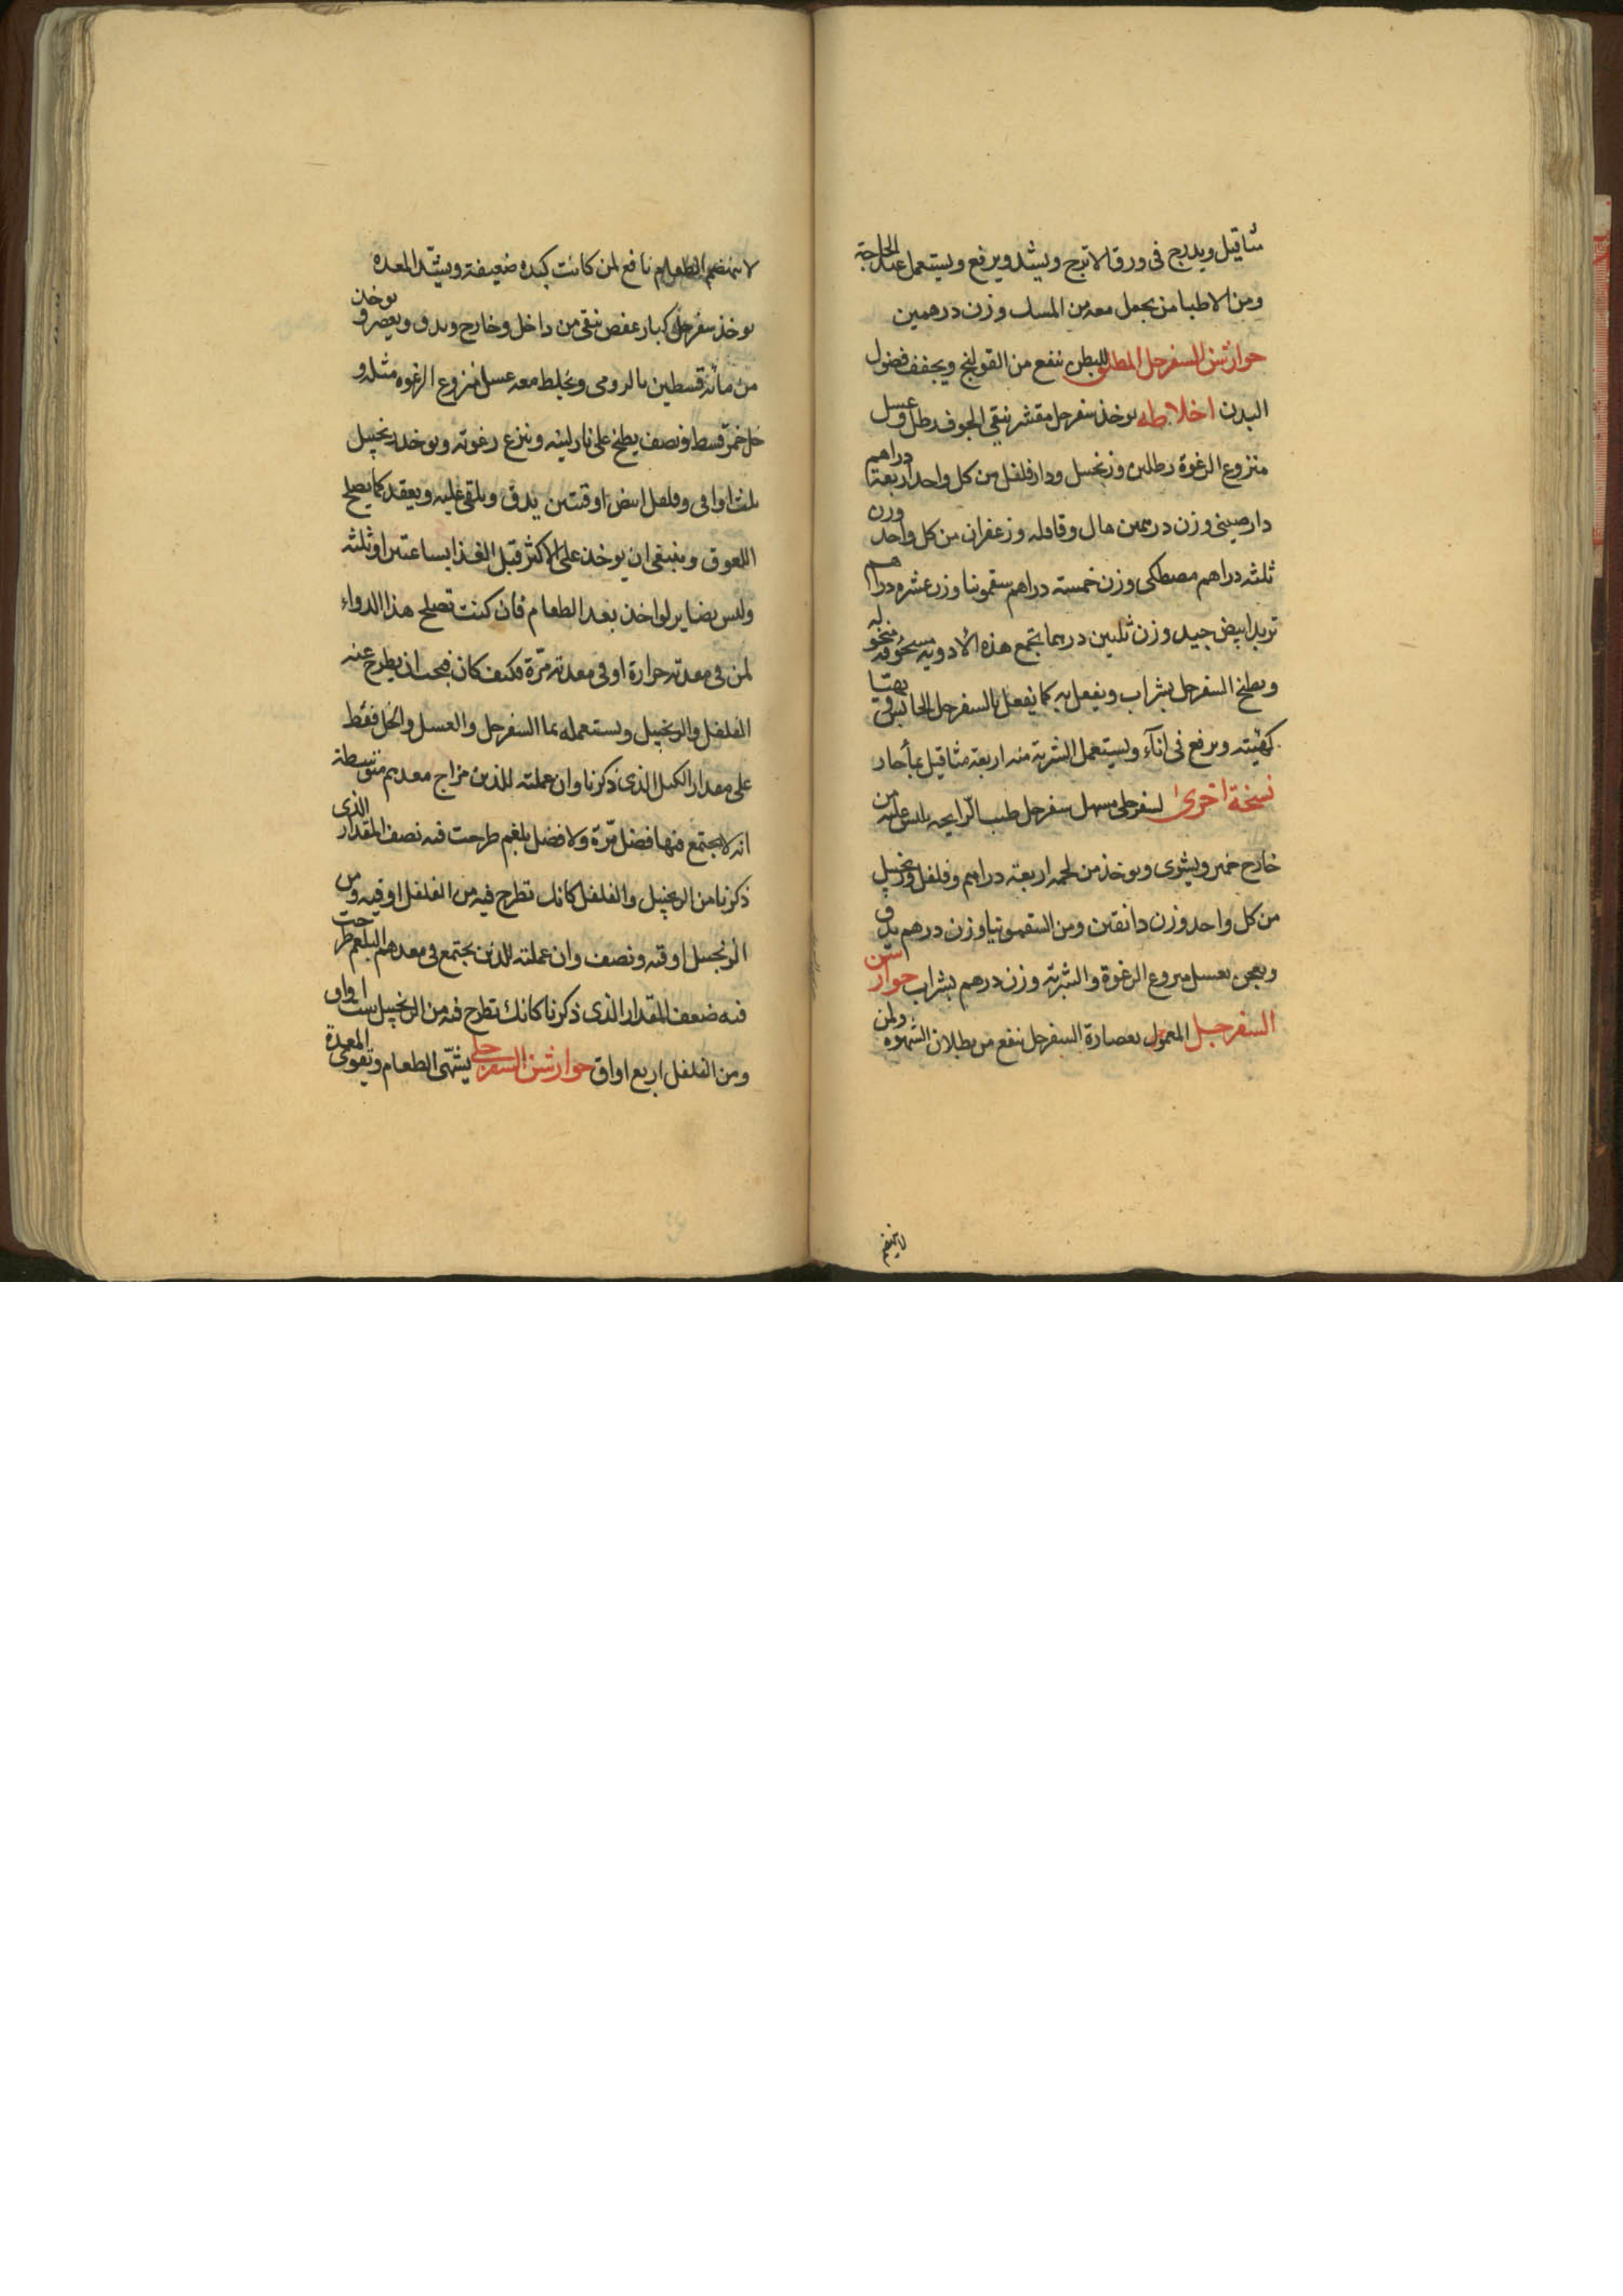 مثاقيل ويدرج فى ورق الاترج ويشد ويرفع ويستعمل عند الحاجة
ومن الاطبا من يجعل معه من المسك وزن درهمين
جوارشن السفرجل المطلق للبطن ينفع من القولنج ويجفف فضول
البدن اخلاطه يوخذ سفرجل مقشر منقى الجوف رطل وعسل
منزوع الرغوة رطلين وزنجبيل ودارفلفل من كل واحد اربعة دراهم
دارصينى وزن درهمين هال وقاقله وزعفران من كل واحد وزن
ثلثه دراهم مصطكى وزن خمسته دراهم سقمونيا وزن عشره دراهم
تربد ابيض جيد وزن ثلثين درهما تجمع هذه الادويه مسحوقه منخوله
ويطبخ السفرجل بشراب ويفعل به كما يفعل بالسفرجل الحابس فى
كهيئته ويرفع فى اناء ويستعمل الشربة منه اربعة مثاقيل بماء حار
نسخة اخرى لسفرجلى مسهل سفرجل طيب الرايحه يلبس عليه من
خارج خمير ويشوى ويوخذ من لحمه اربعته دراهم وفلفل وزنجبيل
من كل واحد وزن دانقين ومن السقمونيا وزن درهم يدق
ويعجن بعسل منزوع الرغوة والشربة وزن درهم بشراب جوارشن
السفرجل المعمول بعصارة السفرجل ينفع من بطلان الشهوه ولمن
لاينهضم
لا ينهضم الطعام نافع لمن كانت كبده ضعيفة ويشد المعده
يوخذ سفرجل كبار عفص ينقى من داخل وخارج ويدق ويعصر ويوخذ
من مائه قسطين بالرومى ويخلط معه عسل منزوع الرغوه مثله و
خل خمر قسط ونصف يطبخ على نار لينه وينزع رغوته ويوخذ زنجبيل
ثلث اواقى وفلفل ابيض اوقيتين يدق ويلقى عليه ويعقد كما يصلح
اللعوق وينبغى ان يوخذ على الاكثر قبل الغذا بساعتين او ثلثه
وليس بضاير لو اخذ بعد الطعام فان كنت تصلح هذا الدواء
لمن فى معدته حرارة او فى معدته مرة فكيف كان فيجب ان يطرح عنه
الفلفل والزنجبيل ويستعمله بما السفرجل والعسل والخل فقط
على مقدار الكيل الذى ذكرنا وان عملته للذين مزاج معدهم متوسطة
انه لا يجتمع فيها فضل مرة ولا فضل بلغم طرحت فيه نصف المقدار الذى
ذكرنا من الزنجبيل والفلفل كانك تطرح فيه من الفلفل اوقيه ومن
الزنجبيل اوقيه ونصف وان عملته للذين يجتمع فى معدهم البلغم طرحت
فيه ضعف المقدار الذى ذكرنا كانك تطرح فيه من الزنجبيل ست اواق
ومن الفلفل اربع اواق جوارشن السفرجلى يشهى الطعام ويقوى المعدة